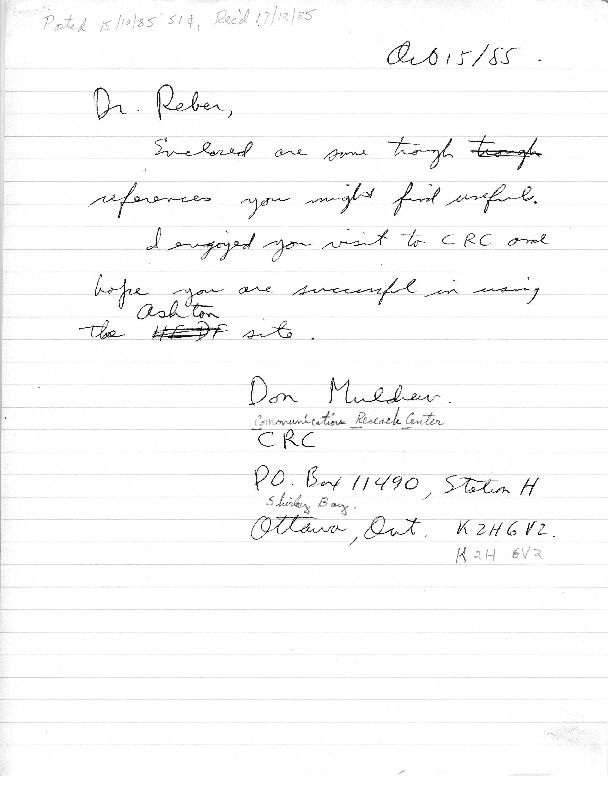 Posted 15/10/85 51¢, Rec'd 17/12/85
Oct 15/85.
Dr. Reber,
Enclosed are some trough trough
references you might find useful.
I enjoyed you visit to CRC and
hope you are successful in using
Ashton
the HFDF site.
Don Muldrew.
Communications Research Center
CRC
P.O. Box 11490, Station H
Shirley Bay.
Ottawa, Ont. K2H6V2.
K2H 6V2